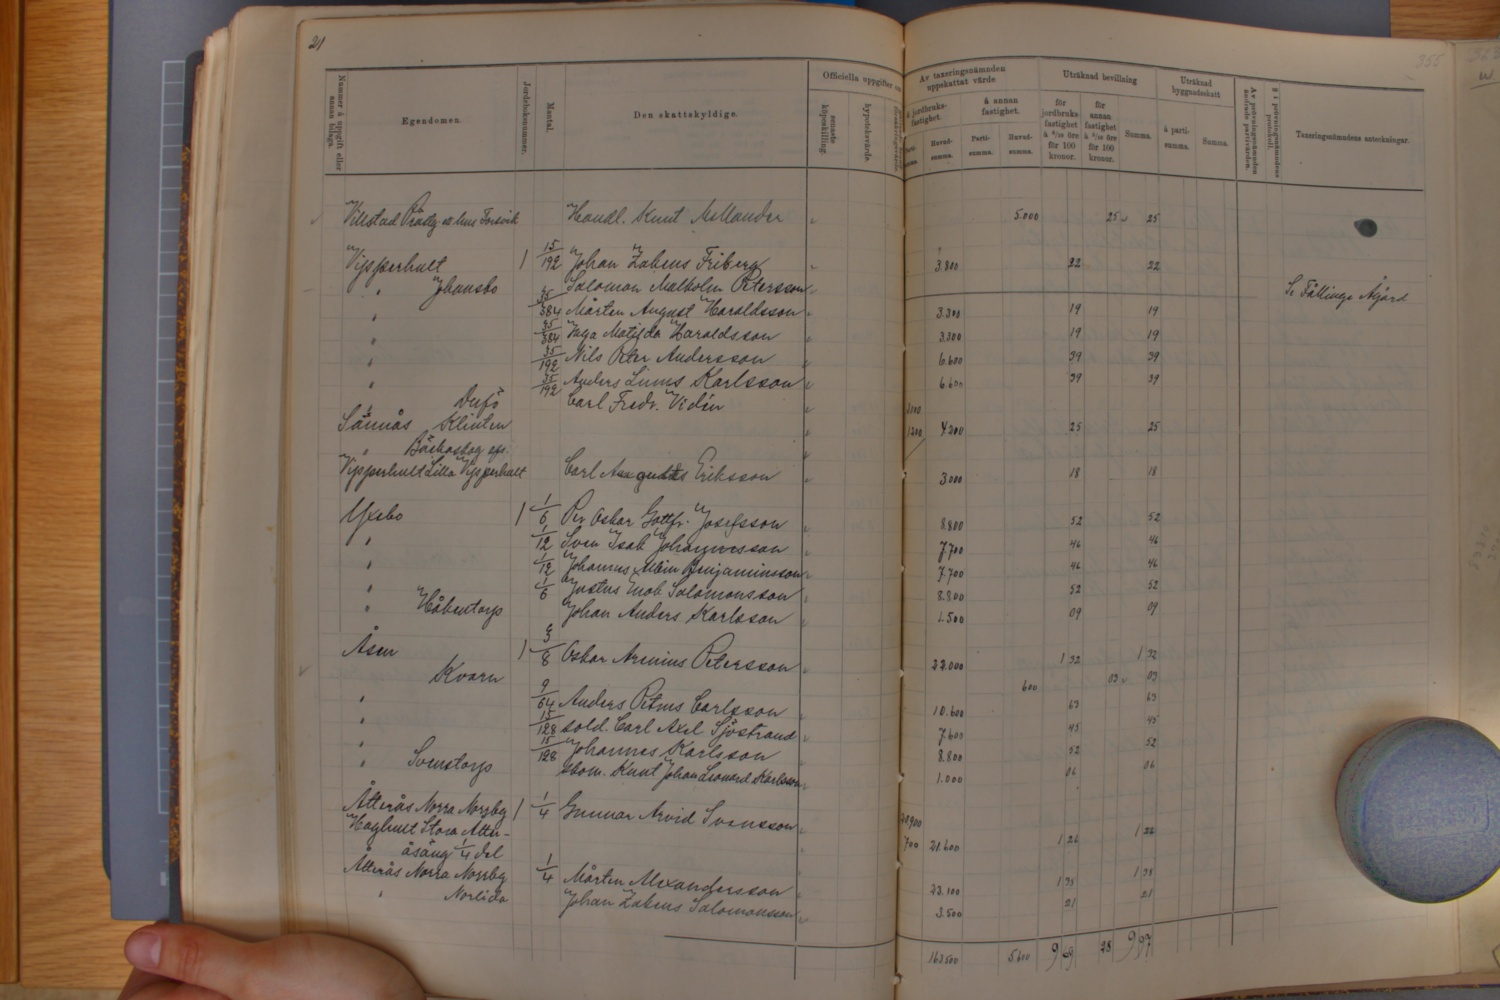 21
355
Nummer å uppgift eller annan bilaga.
Egendomen.
Jordeboksnummer.
Mantal.
Den skattskyldige.
Officiella uppgifter om
senaste köpeskilling.
hypoteksvärde.
Av taxeringsnämnden uppskattat värde
å jordbruksfastighet.
å annan fastighet.
Partisumma.
Huvudsumma.
Partisumma.
Huvudsumma.
Uträknad bevillning
för jordbruksfastighet à 6/10 öre för 100 kronor.
för annan fastighet à 5/10 öre för 100 kronor.
Summa.
Uträknad byggnadsskatt
à partisumma.
Summa.
Av prövningsnämnden ändrade partivärden.
§ i prövningsnämndens protokoll.
Taxeringsnämndens anteckningar.
Villstad Prästg. Forsvik Handl. Knut Mellander 5.000 25 25
Vipperhult 1 15/192 Johan Zakeus Friberg 3.800 22 22
" Johansbo Salomon Malkolm Petersson Se Fållinge Ågård
" 35/384 Mårten August Haraldsson 3.300 19 19
" 35/384 Inga Matilda Haraldsson 3.300 19 19
" 35/192 Nils Peter Andersson 6.600 39 39
" 35/192 Anders Linus Karlsson 6.600 39 39
" Carl Fredr. Vidén
Sännås Klinten 1200 4200 25 25
Vipperhult Lilla Vipperhult Carl August Eriksson 3000 18 18
Yxebo 1 1/6 Per Oskar Gottfr. Josefsson 8.800 52 52
" 1/12 Sven Isak Johannesson 7.700 46 46
" 1/12 Johannes Benjaminsson 7.700 46 46
" 1/6 Justus Enok Salomonsson 8.800 52 52
" Håkentorp Johan Anders Karlsson 1.500 09 09
Åsen 1 3/8 Oskar Arenius Petersson 22.000 1 32 1 32
Kvarn 600 03 03
" 9/64 Anders Petrus Carlsson 10.600 63 63
" 15/128 sold. Carl Axel Sjöstrand 7.600 45 45
" 15/128 Johannes Karlsson 8.800 52 52
" Svenstorp Knut Johan Leonard Karlsson 1.000 06 06
Åtterås Norra Norrbg 1 1/4 Gunnar Arvid Svensson
Haghult Stora Åtteråsäng 1/4 del 700
Åtterås Norra Norrbg 1/4 Mårten Alexandersson 23.100
" Norlida Johan Zakeus Salomonsson 3.500 21 21
5.600 28